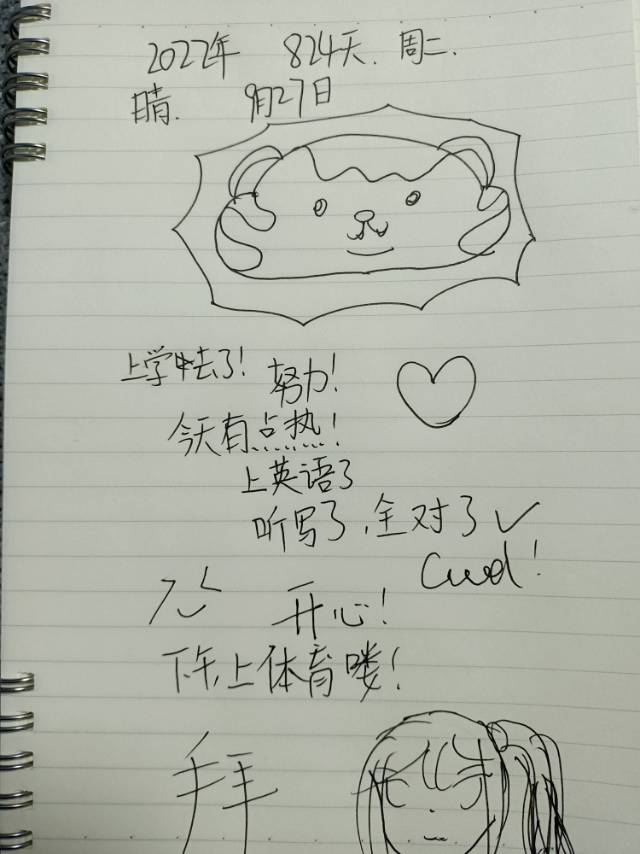 2022年 824天. 周二.
晴. 9月27日
上学去了! 努力!
今天有点热!
上英语了
听写了,全对了✓
开心!
下午,上体育喽!
拜